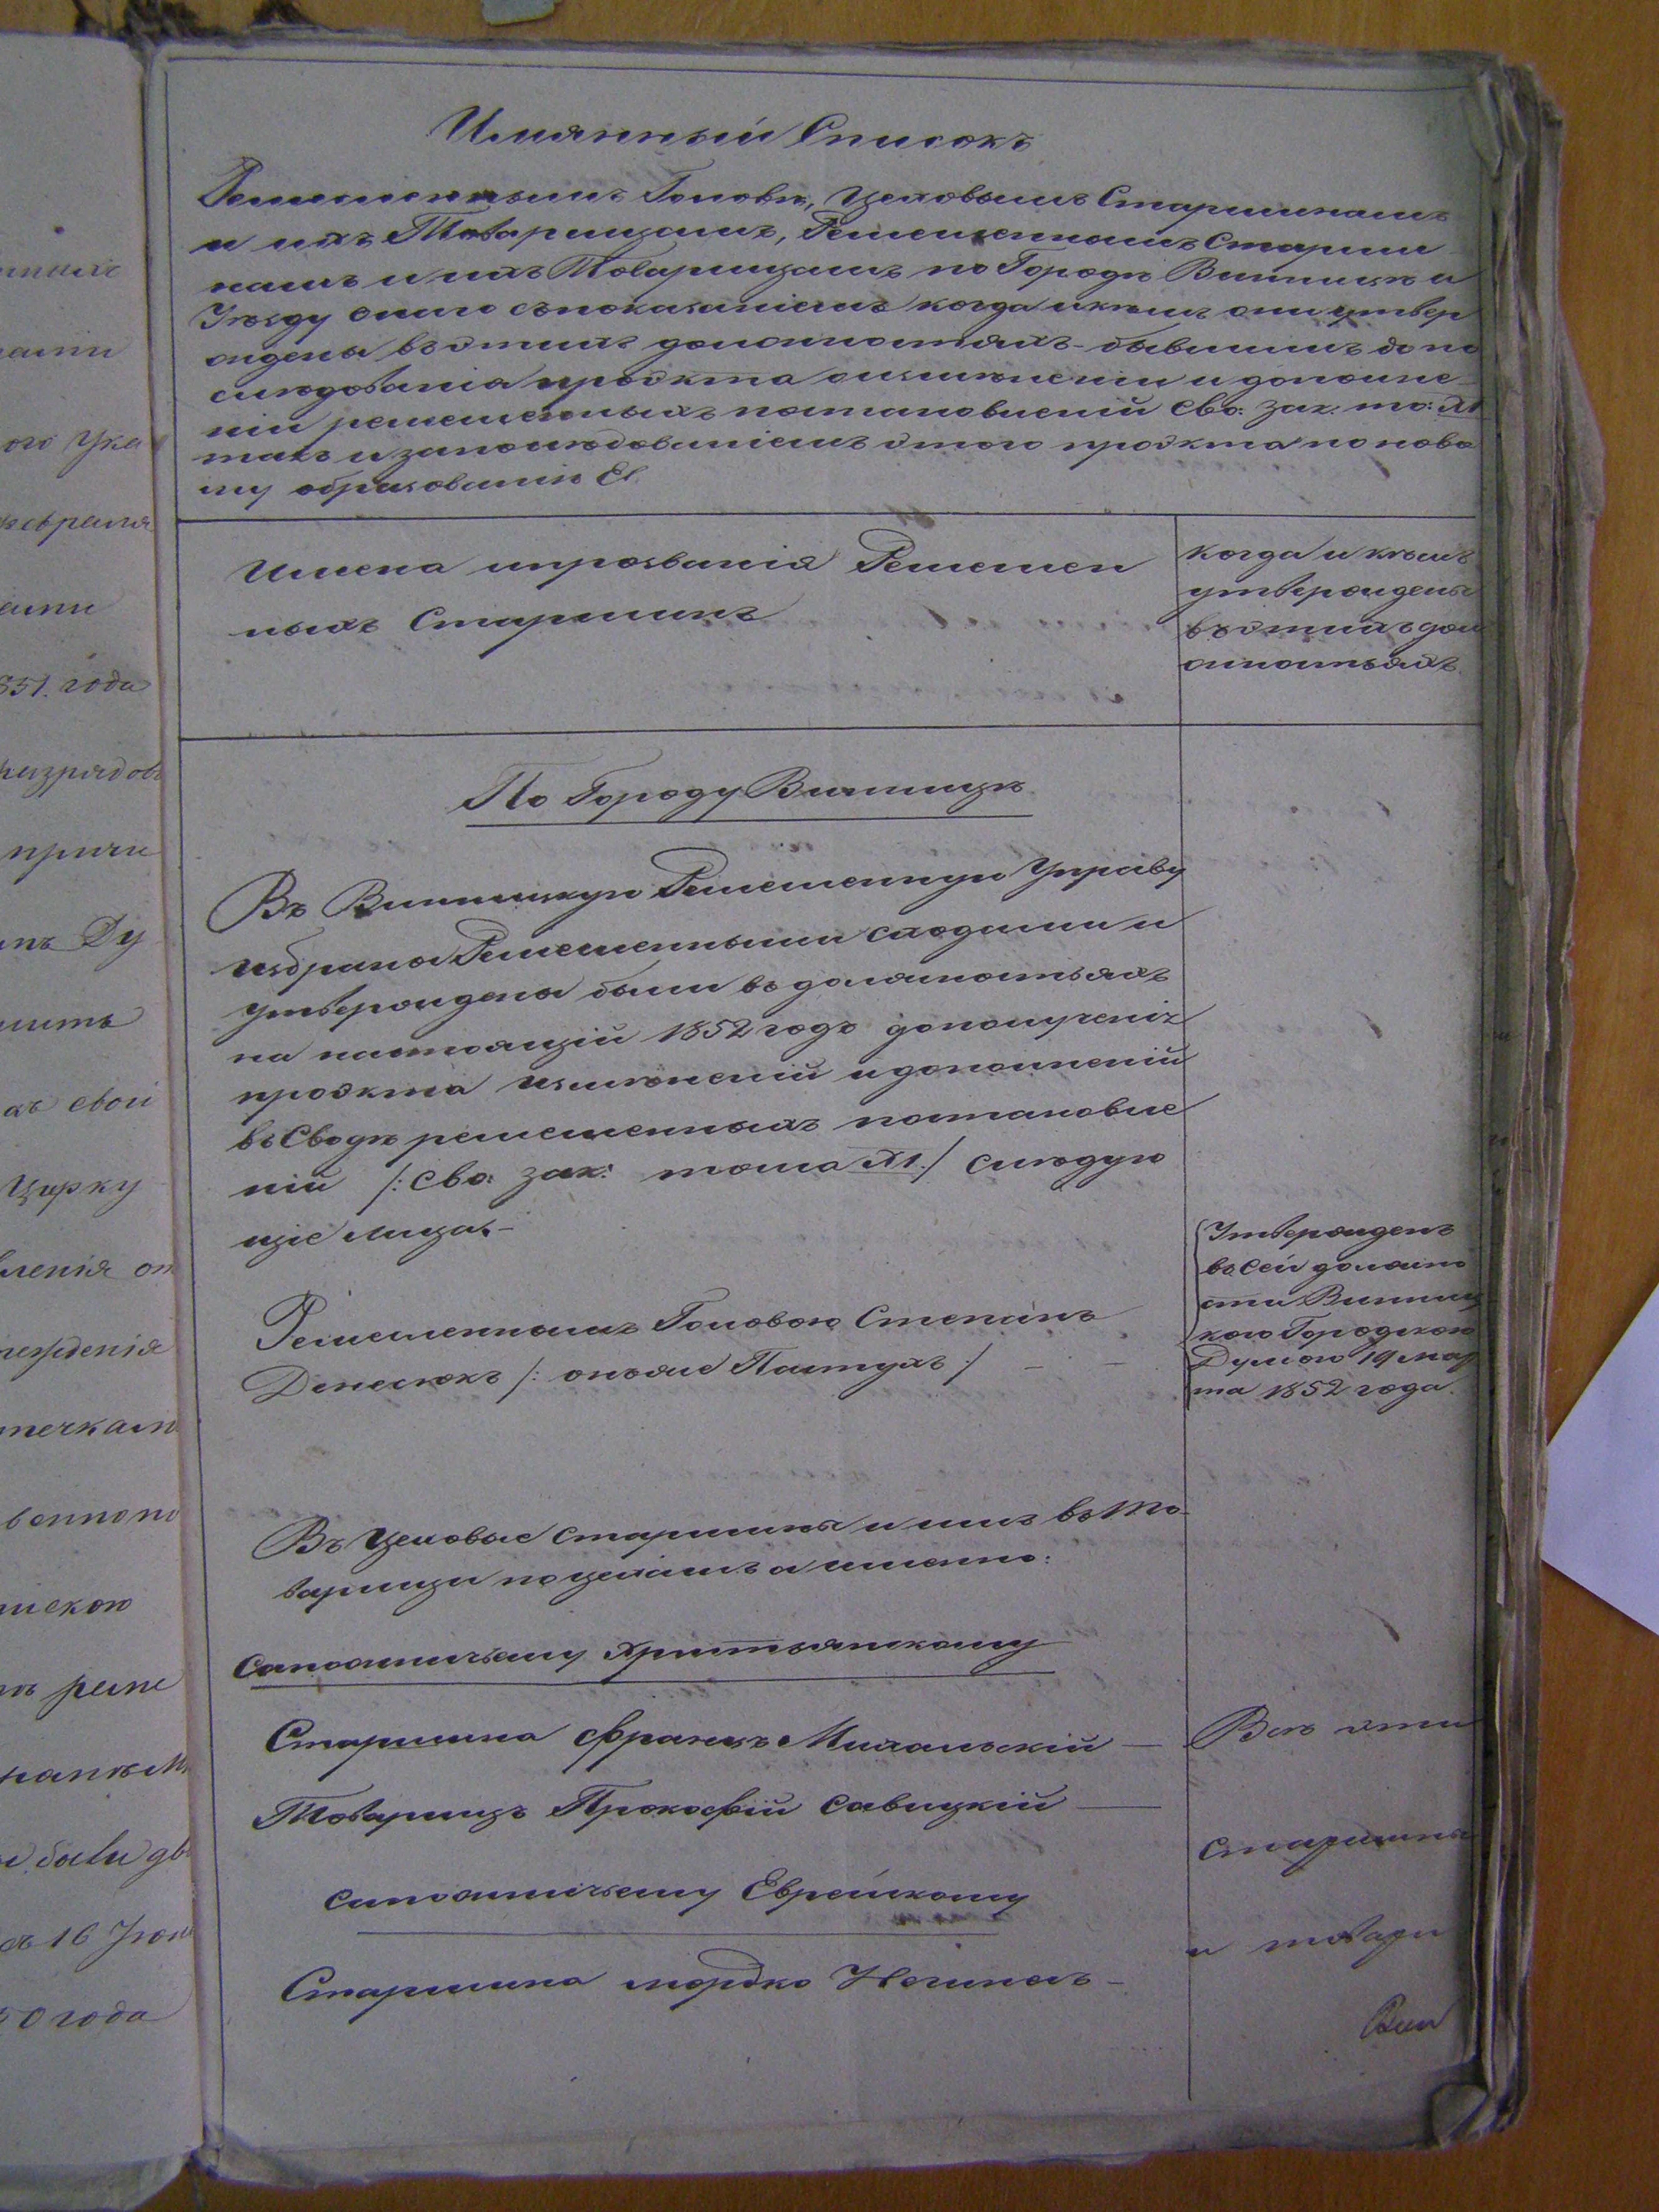 Имянный Списокъ
Ремесленнымъ Головѣ, Цеховымъ Старшинамъ
и ихъ Товарищамъ, Ремесленнымъ Старши
намъ и ихъ Товарищамъ по Городѣ Винницѣ и
Уѣзду оного съ показаніемъ когда и кѣмъ они утвер
ждены въ этихъ должностяхъ бывшимъ до по
слѣдованія проэкта о измѣненіи и дополне
ніи ремесленныхъ постановленій Сво: зак: то: XI
такъ и за послѣдованіемъ этого проэкта по ново
му образованію
Имена и прозванія Ремеслен
ныхъ Старшинъ
когда и кѣмъ
утверждены
въ этихъ дол
жностьяхъ
По Городу Винницѣ
Въ Винницкую Ремесленную Управу
избраны Ремесленными сходами и
утверждены были въ должностьяхъ
на настоящій 1852 годъ до полученія
проэкта измѣненій и дополненій
въ Сводѣ ремесленныхъ постановле
ній /: Сво: зак: тома XI :/ слѣдую
щіе лица:
Ремесленнымъ Головою Степанъ
Денесюкъ /: онъ же Пастухъ :/ — —
Утвержденъ
въ сей должно
сти Винниц
кою Городскою
Думою 19 мар
та 1852 года.
Въ Цеховые старшины и ихъ въ То-
варищи по цехамъ а именно:
Сапожничьему Христьянскому
Старшина Францъ Михальскій —
Товарищъ Прокофій Савицкій —
Всѣ эти
Старшины
и товари
сапожничьему Еврейскому
Старшина мордко —
Вин
нныхъ
ами
ого Ука
февраля
ами
851. года
и разрядовъ
причи
нъ Ду
нить
хъ свои
Цирку
вленія от
верженія
течкамъ
венного
нскою
ъ реме
были дв
съ 16 Іюн
50 года